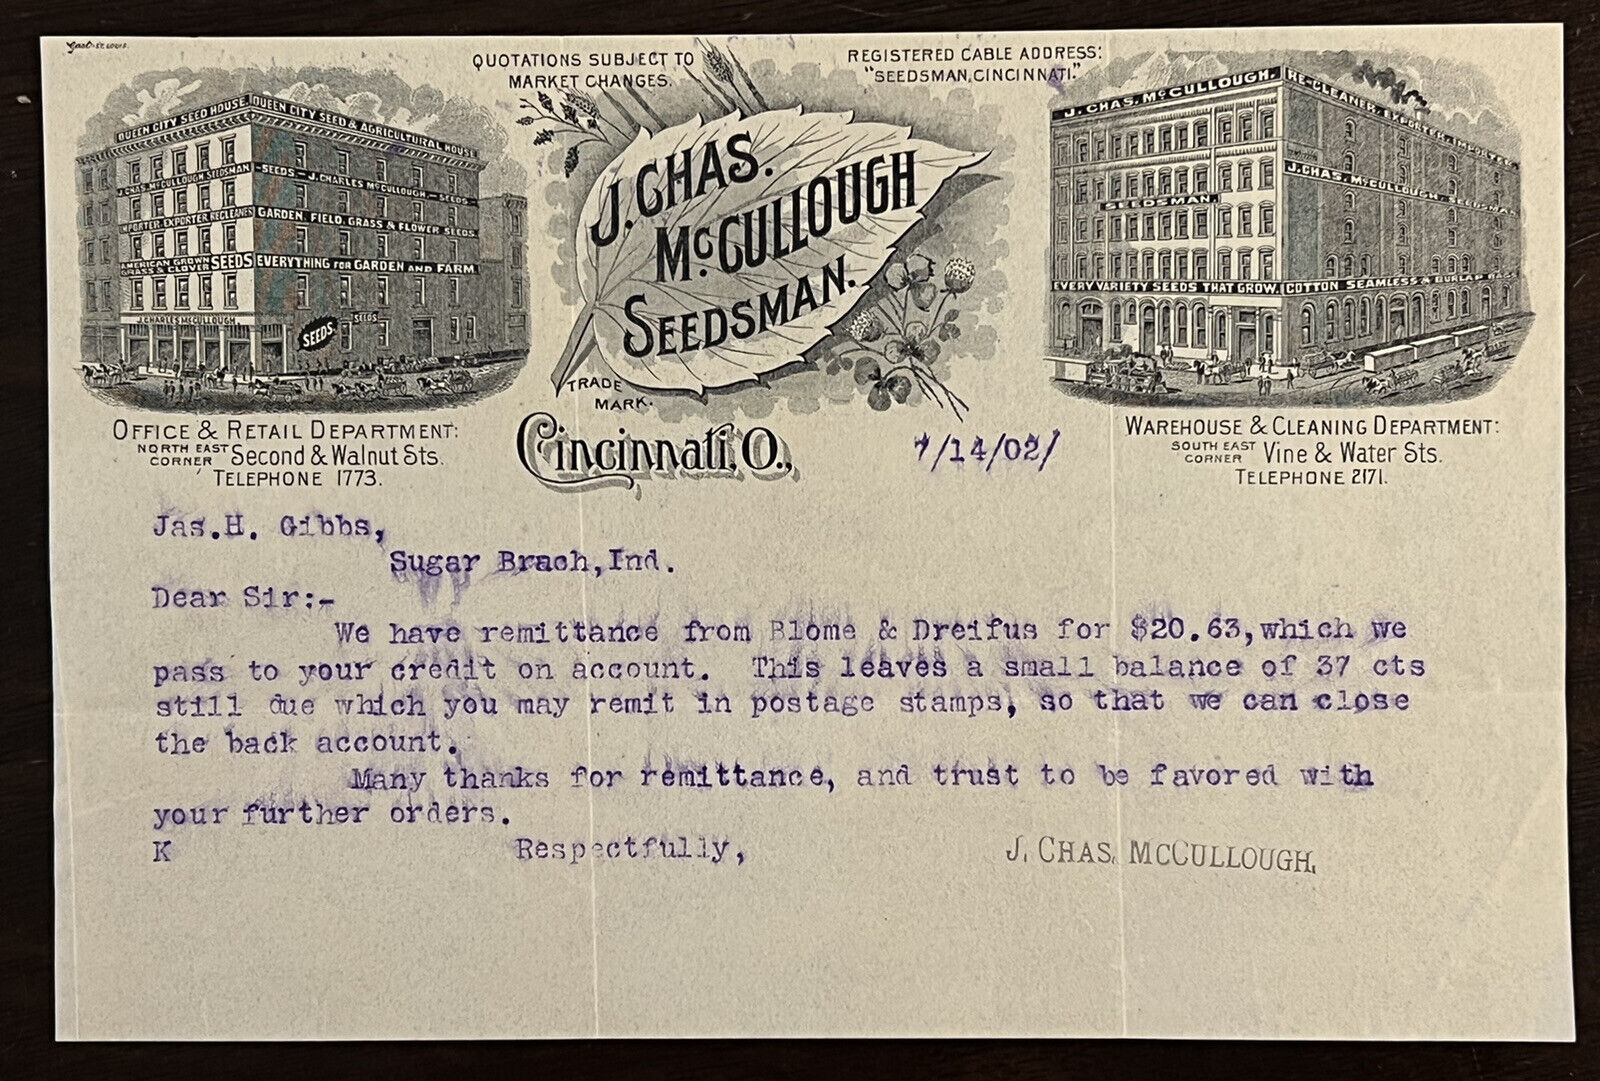 Gast St. Louis.
QUOTATIONS SUBJECT TO
MARKET CHANGES.
REGISTERED CABLE ADDRESS:
"SEEDSMAN, CINCINNATI."
QUEEN CITY SEED HOUSE. QUEEN CITY SEED & AGRICULTURAL HOUSE
J. CHAS. McCULLOUGH SEEDSMAN -SEEDS- J. CHARLES McCULLOUGH -SEEDS-
IMPORTER, EXPORTER, RECLEANER GARDEN, FIELD, GRASS & FLOWER SEEDS.
AMERICAN GROWN
GRASS & CLOVER SEEDS EVERYTHING FOR GARDEN AND FARM
J. CHARLES McCULLOUGH
SEEDS.
SEEDS
J. CHAS.
McCULLOUGH
SEEDSMAN.
TRADE
MARK.
J. CHAS. McCULLOUGH. RE-CLEANER, EXPORTER, IMPORTER.
J. CHAS. McCULLOUGH, SEEDSMAN.
SEEDSMAN.
EVERY VARIETY SEEDS THAT GROW. COTTON SEAMLESS & BURLAP BAGS
OFFICE & RETAIL DEPARTMENT:
NORTH EAST
CORNER Second & Walnut Sts.
TELEPHONE 1773.
Cincinnati, O.,
7/14/02/
WAREHOUSE & CLEANING DEPARTMENT:
SOUTH EAST
CORNER Vine & Water Sts.
TELEPHONE 2171.
Jas.H. Gibbs,
Sugar Brach,Ind.
Dear Sir:-
We have remittance from Blome & Dreifus for $20.63,which we
pass to your credit on account. This leaves a small balance of 37 cts
still due which you may remit in postage stamps, so that we can close
the back account.
Many thanks for remittance, and trust to be favored with
your further orders.
K Respectfully,
J. CHAS. McCULLOUGH,